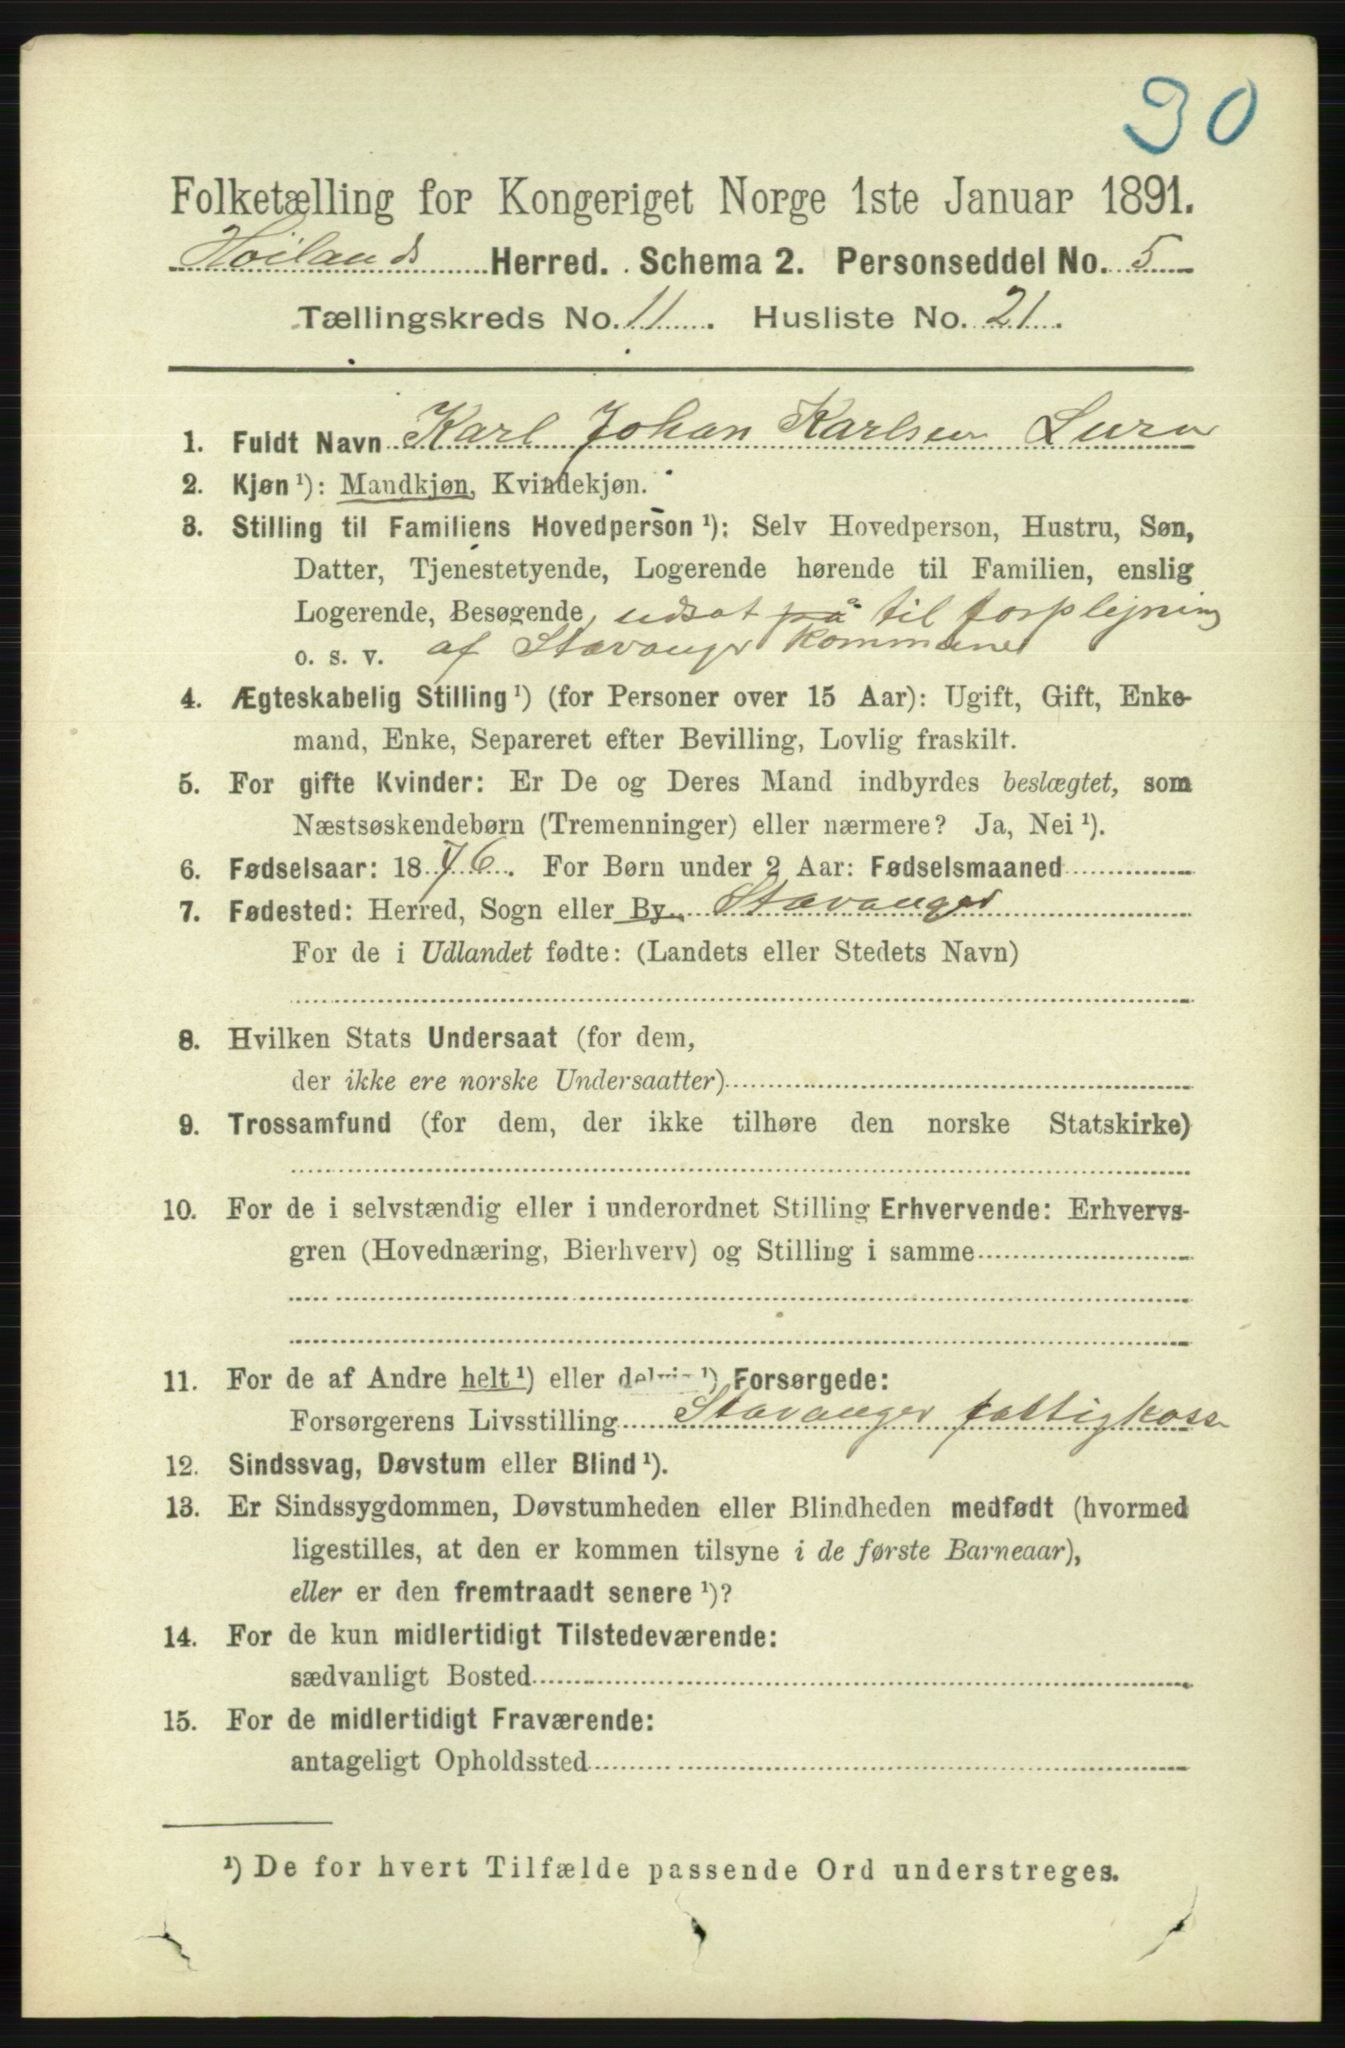 30
Folketælling for Kongeriget Norge 1ste Januar 1891.
Høilands Herred. Schema 2. Personseddel No. 5
Tællingskreds No. 11. Husliste No. 21.
1. Fuldt Navn Karl Johan Karlsen Lura
2. Kjøn ¹): Mandkjøn, Kvindekjøn.
3. Stilling til Familiens Hovedperson ¹): Selv Hovedperson, Hustru, Søn,
Datter, Tjenestetyende, Logerende hørende til Familien, enslig
Logerende, Besøgende, udsat på til forplejning
o. s. v. af Stavanger kommune
4. Ægteskabelig Stilling ¹) (for Personer over 15 Aar): Ugift, Gift, Enke-
mand, Enke, Separeret efter Bevilling, Lovlig fraskilt.
5. For gifte Kvinder: Er De og Deres Mand indbyrdes beslægtet, som
Næstsøskendebørn (Tremenninger) eller nærmere? Ja, Nei ¹).
6. Fødselsaar: 1876. For Børn under 2 Aar: Fødselsmaaned
7. Fødested: Herred, Sogn eller By. Stavanger
For de i Udlandet fødte: (Landets eller Stedets Navn)
8. Hvilken Stats Undersaat (for dem,
der ikke ere norske Undersaatter)
9. Trossamfund (for dem, der ikke tilhøre den norske Statskirke)
10. For de i selvstændig eller i underordnet Stilling Erhvervende: Erhvervs-
gren (Hovednæring, Bierhverv) og Stilling i samme
11. For de af Andre helt ¹) eller delvis ¹) Forsørgede:
Forsørgerens Livsstilling Stavanger fattigkasse
12. Sindssvag, Døvstum eller Blind ¹).
13. Er Sindssygdommen, Døvstumheden eller Blindheden medfødt (hvormed
ligestilles, at den er kommen tilsyne i de første Barneaar),
eller er den fremtraadt senere ¹)?
14. For de kun midlertidigt Tilstedeværende:
sædvanligt Bosted
15. For de midlertidigt Fraværende:
antageligt Opholdssted
¹) De for hvert Tilfælde passende Ord understreges.